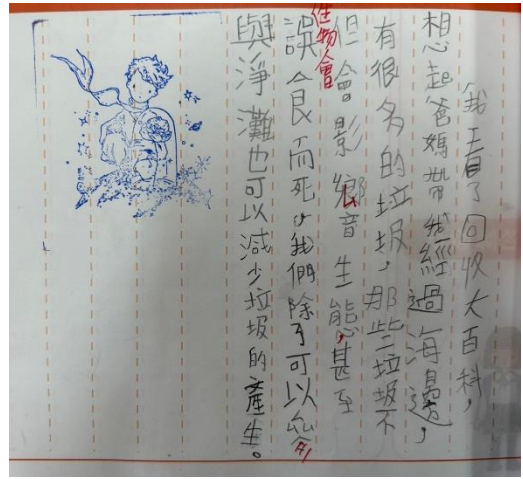 我看了回收大百科，
想起爸媽帶我經過海邊，
有很多的垃圾，那些垃圾不
但會影響生態，甚至
生物會
誤食而死，我們除了可以參
與淨灘也可以減少垃圾的產生。